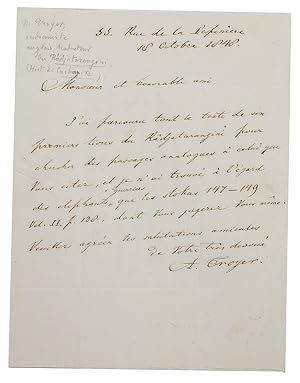 M. Troyer,
indianiste
anglais, traducteur
du Râdjatarangini
(Hist. de Cachemire)
33. Rue de la Pépinière
18 Octobre 1848
Monsieur et honorable ami
J'ai parcouru tout le texte de six
premiers livres du Râdjatarangini pour
chercher des passages analogues à celui que
Vous citez, et je n'ai trouvé à l'égard
des elephants, que les slokas 147–149
Vol. II, p. 138, dont Vous jugerez Vous même.
Veuillez agréer les salutations amicales
de Votre très devoué
A. Troyer.